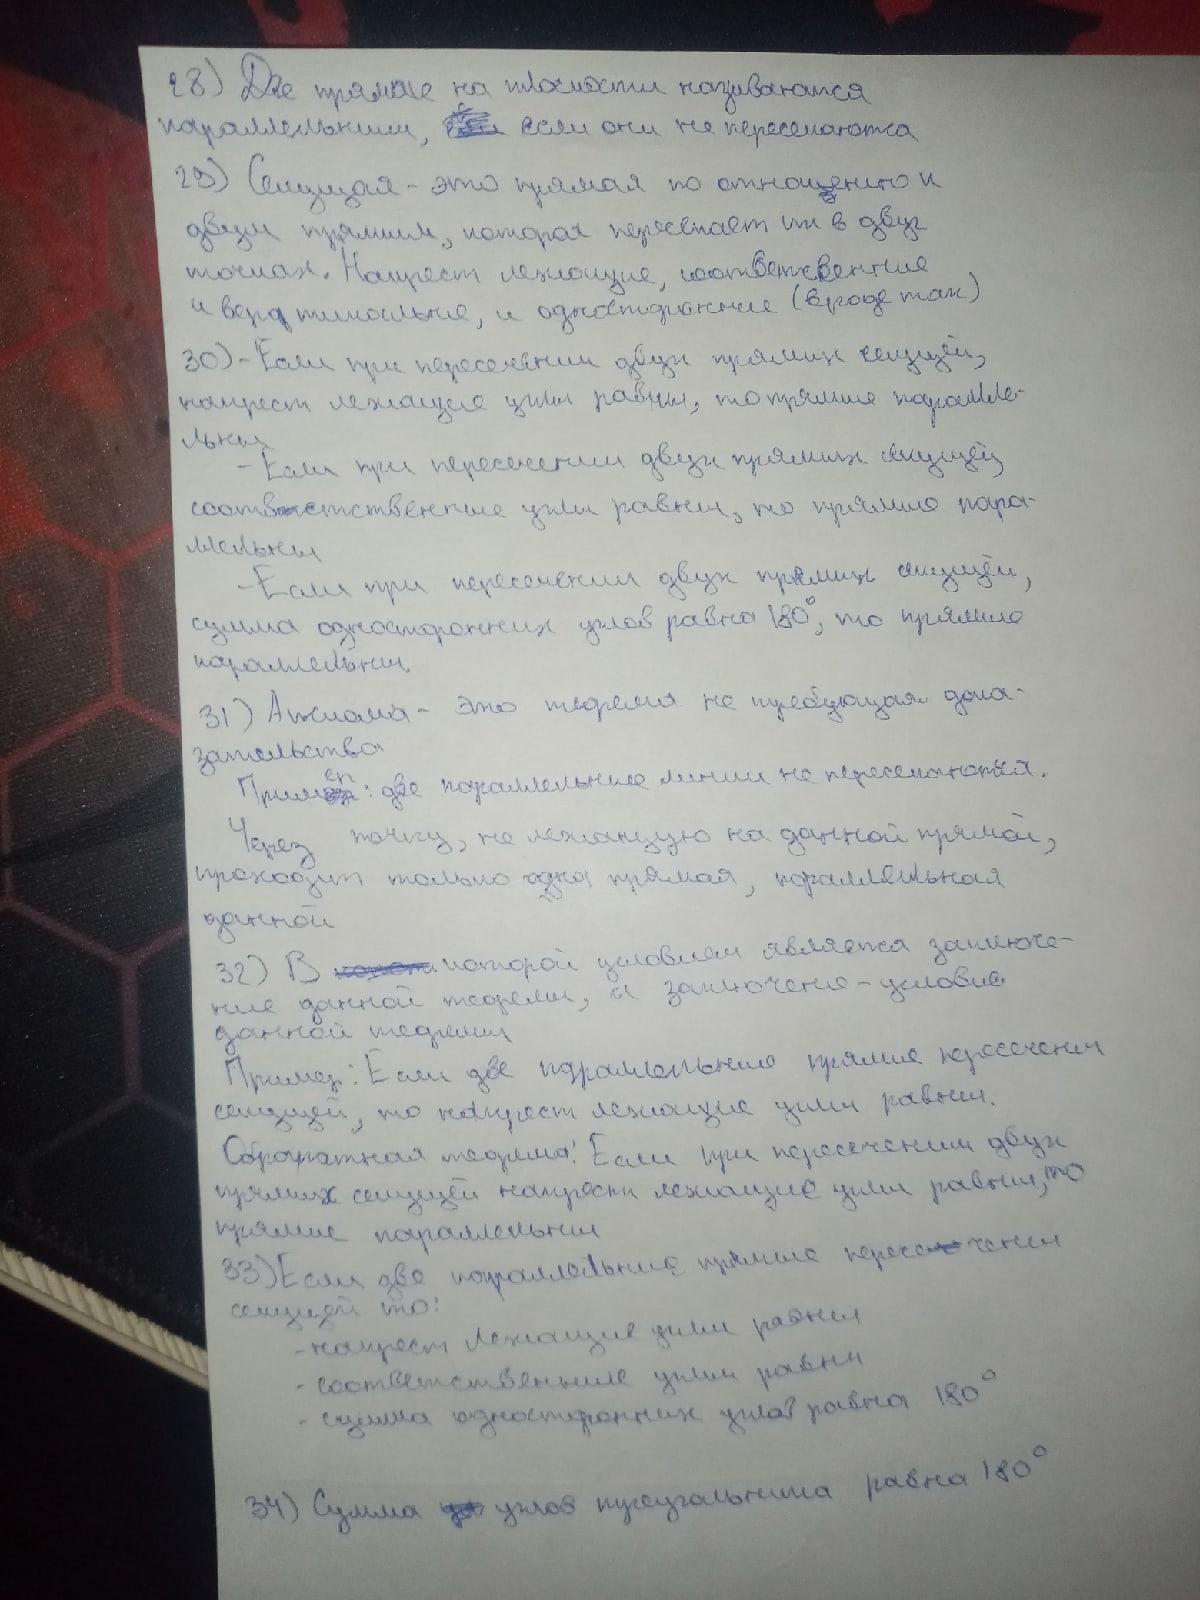 28) Две прямые на плоскости называются
параллельными, если они не пересекаются
29) Секущая - это прямая по отношению к
двум прямым, которая пересекает их в двух
точках. Накрест лежащие, соответственные
и вертикальные, и односторонние (вроде так)
30) - Если при пересечении двух прямых секущей,
накрест лежащие углы равны, то прямые паралле-
льны
- Если при пересечении двух прямых секущей,
соответственные углы равны, то прямые пара-
ллельны
- Если при пересечении двух прямых секущей,
сумма односторонних углов равна 180°, то прямые
параллельны
31) Аксиома - это теорема не требующая дока-
зательства
Пример: две параллельные линии не пересекаются.
Через точку, не лежащую на данной прямой,
проходит только одна прямая, параллельная
данной
32) В которой условием является заключе-
ние данной теоремы, а заключение - условие
данной теоремы
Пример: Если две параллельные прямые пересечены
секущей, то накрест лежащие углы равны.
Обратная теорема: Если при пересечении двух
прямых секущей накрест лежащие углы равны, то
прямые параллельны
33) Если две параллельные прямые пересечены
секущей то:
- накрест лежащие углы равны
- соответственные углы равны
- сумма односторонних углов равна 180°
34) Сумма углов треугольника равна 180°